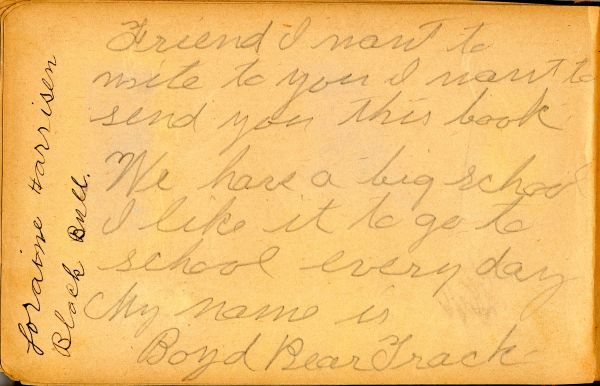 Friend I want to
write to you I want to
send you this book
We have a big school
I like it to go to
school every day
My name is
Boyd Bear Track
Loraine Harrisen
Black Bull.